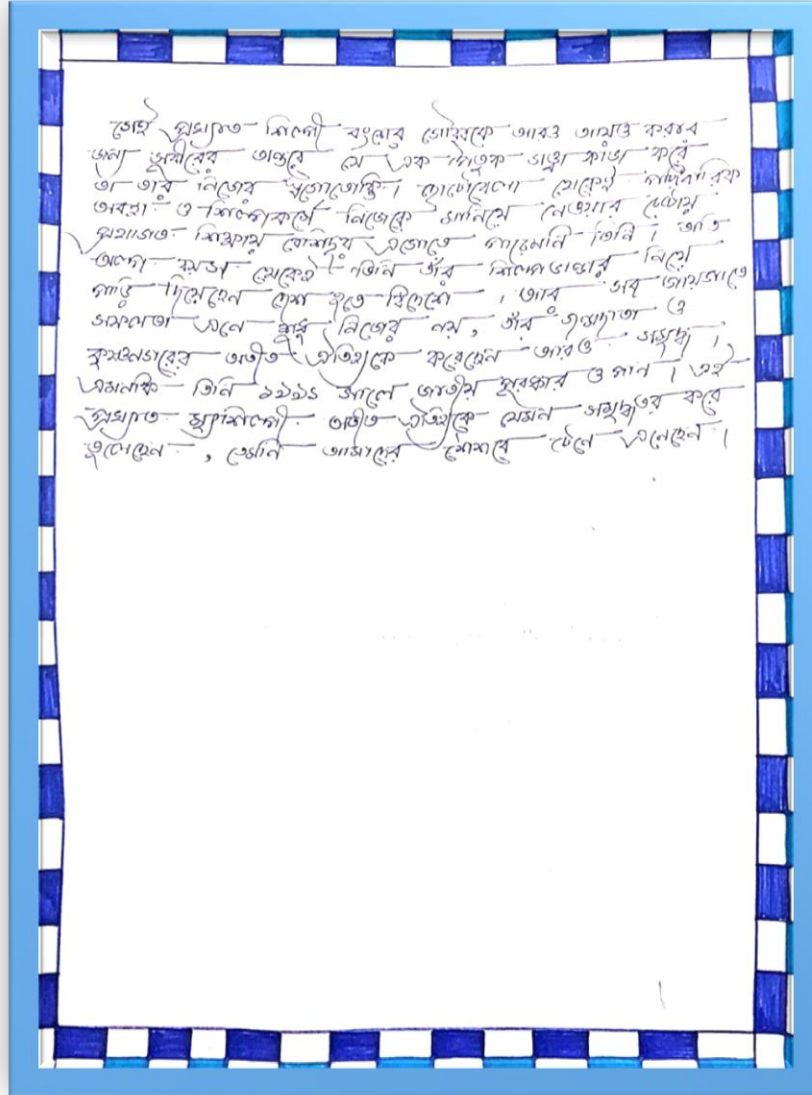 সেই প্রখ্যাত শিল্পী বংশের গৌরবকে আরও আয়ত্ত করার
জন্য সুবীরের অন্তরে যে এক পৈতৃক সত্ত্বা কাজ করে
তা তার নিজের স্বগোতোক্তি। ছোটোবেলা থেকেই পারিবারিক
অবস্থা ও শিল্পকর্মে নিজেকে মানিয়ে নেওয়ার চেষ্টায়
প্রথাগত শিক্ষায় বেশিদূর এগোতে পারেননি তিনি। অতি
অল্প বয়স থেকেই তিনি তাঁর শিল্পসম্ভার নিয়ে
পাড়ি দিয়েছেন দেশ হতে বিদেশে। আর সব জায়গাতে
সফলতা এনে শুধু নিজের নয়, তাঁর জন্মদাতা ও
কৃষ্ণনগরের অতীত ঐতিহ্যকে করেছেন আরও সমৃদ্ধ।
এমনকি তিনি ১৯৯১ সালে জাতীয় পুরস্কার ও পান। এই
প্রখ্যাত মৃৎশিল্পী অতীত ঐতিহ্যকে যেমন সমৃদ্ধতর করে
তুলেছেন, তেমনি আমাদের শৈশবে টেনে এনেছেন।